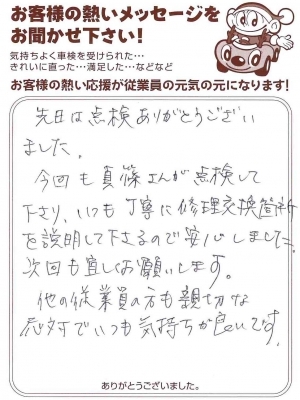 お客様の熱いメッセージを
お聞かせ下さい！
気持ちよく車検を受けられた…
きれいに直った…満足した…などなど
お客様の熱い応援が従業員の元気の元になります！
先日は点検ありがとうござい
ました。
今回も真篠さんが点検して
下さり、いつも丁寧に修理交換箇所
を説明して下さるので安心しました。
次回も宜しくお願いします。
他の従業員の方も親切な
応対でいつも気持ちが良いです。
ありがとうございました。